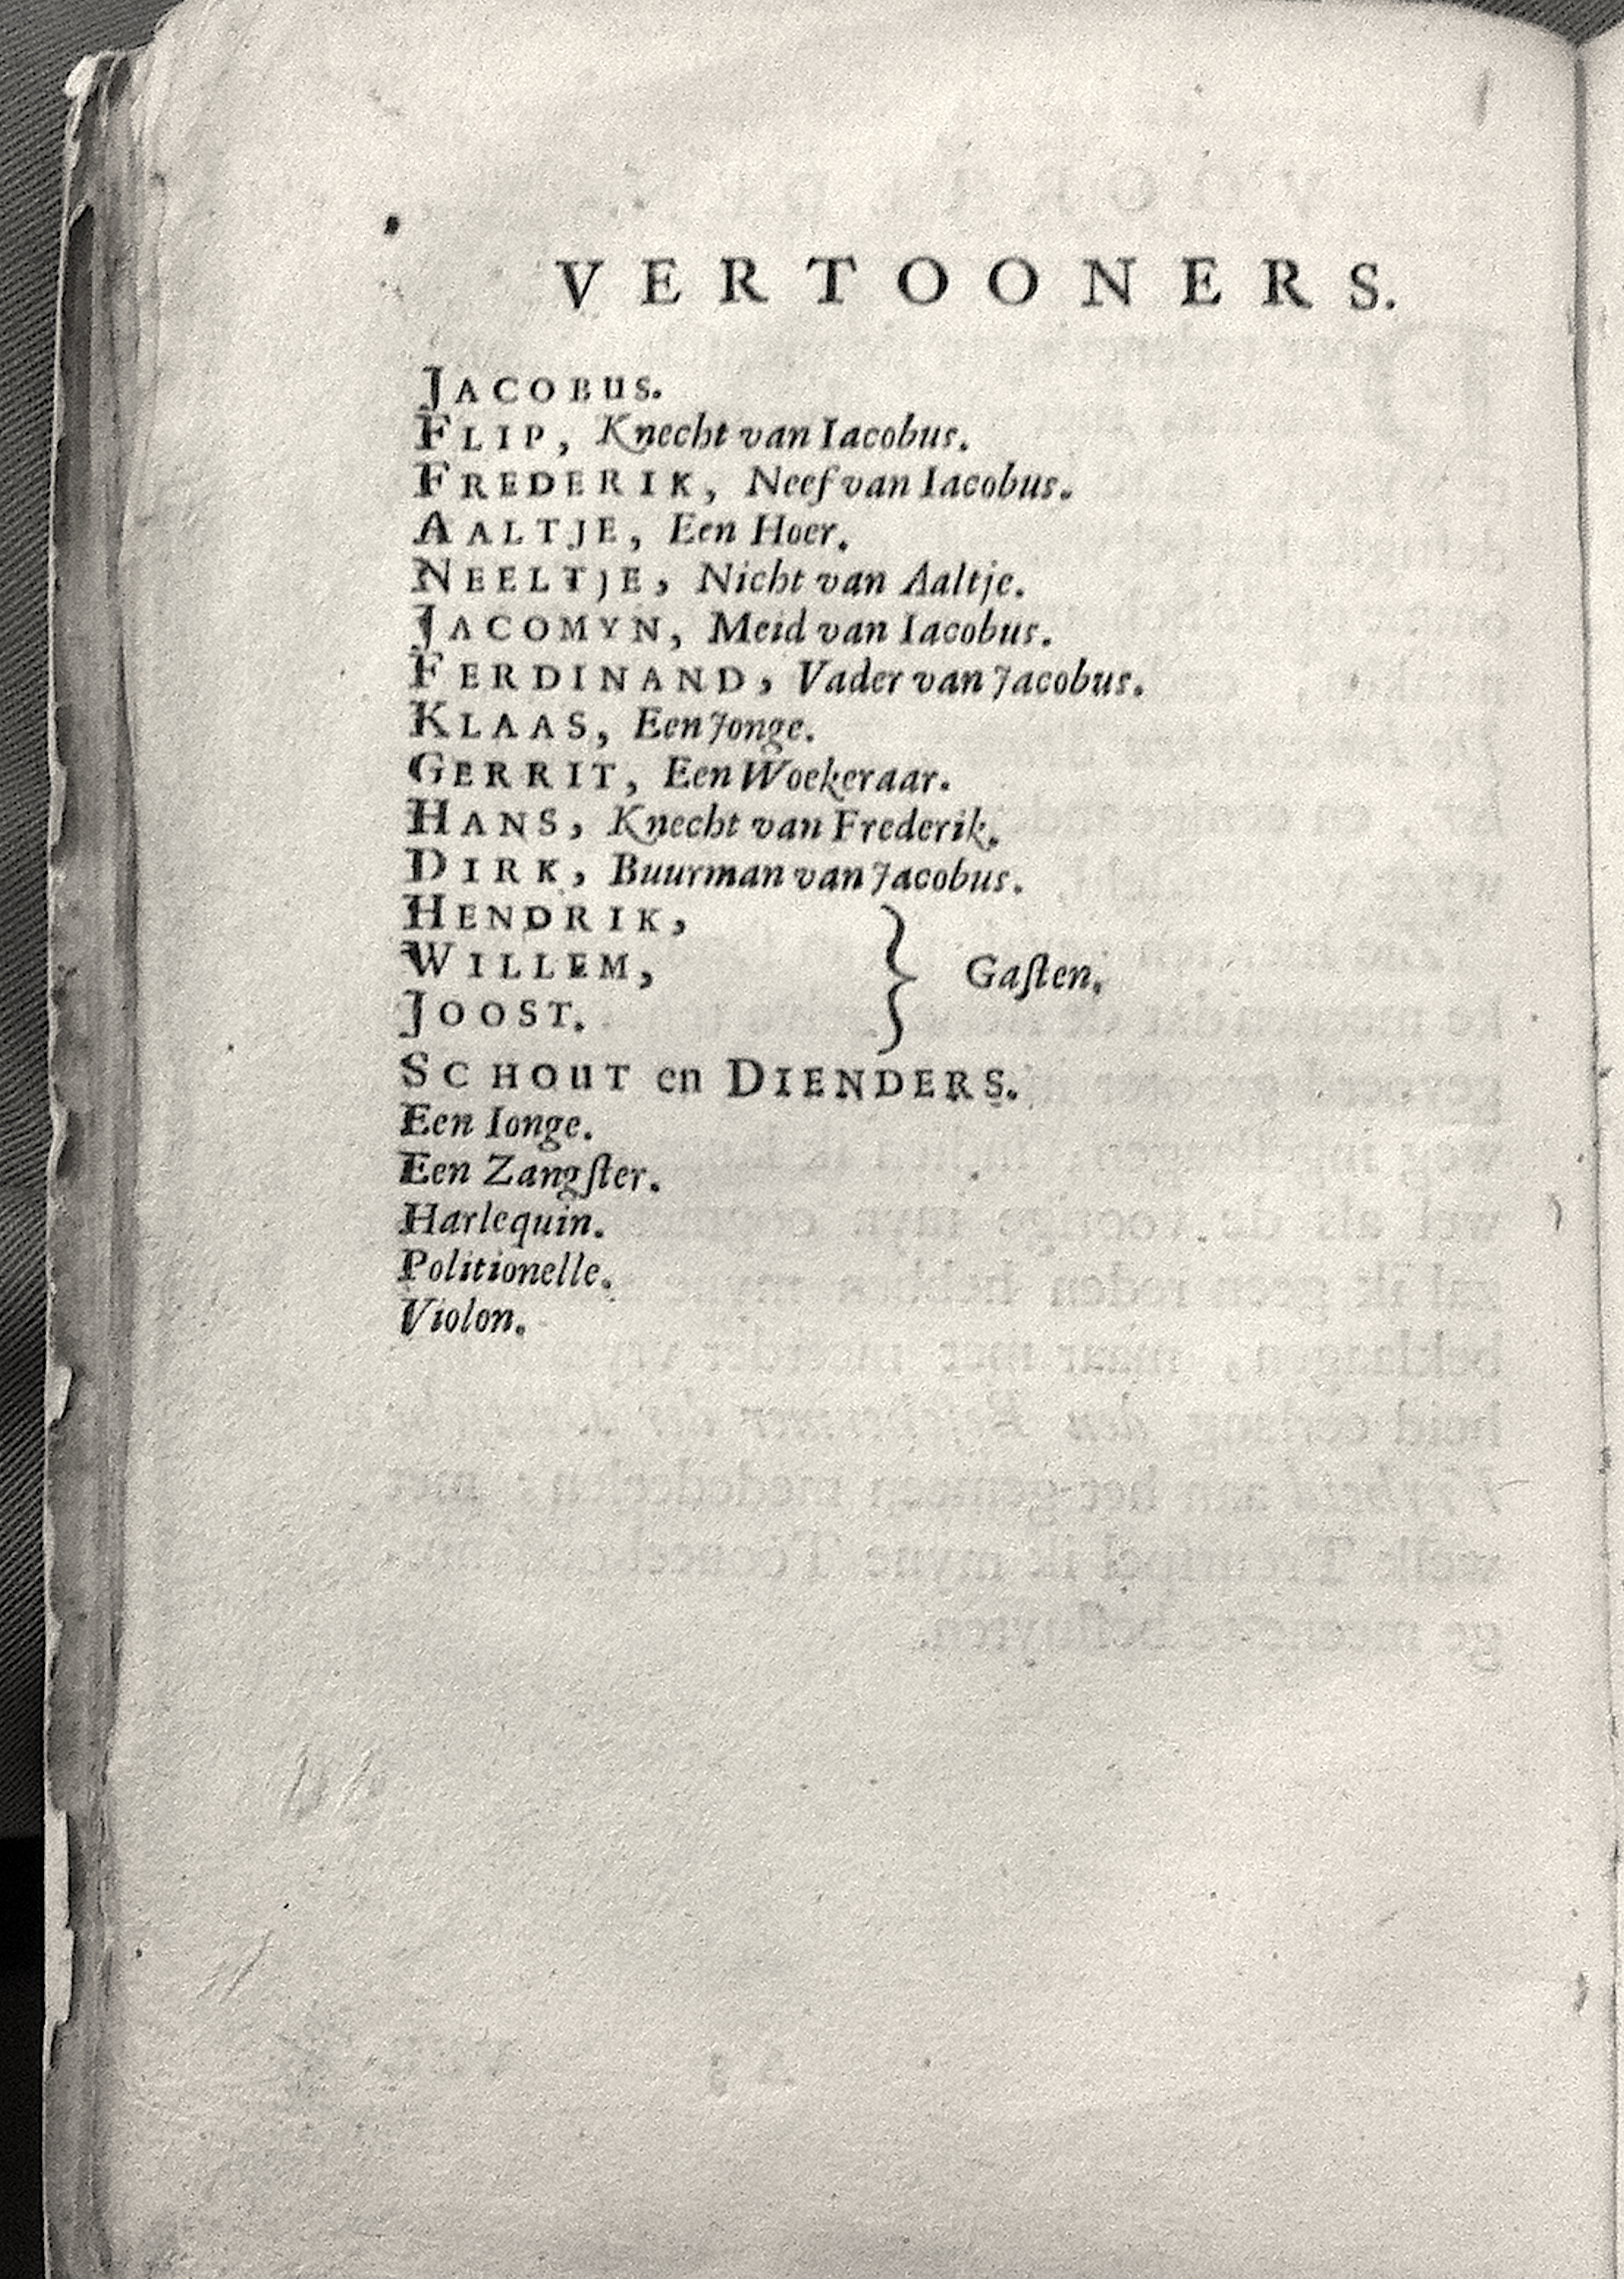 VERTOONERS.
JACOBUS.
FLIP, Knecht van Iacobus.
FREDERIK, Neef van Iacobus.
AALTJE, Een Hoer.
NEELTJE, Nicht van Aaltje.
JACOMYN, Meid van Iacobus.
FERDINAND, Vader van Jacobus.
KLAAS, Een Jonge.
GERRIT, Een Woekeraar.
HANS, Knecht van Frederik.
DIRK, Buurman van Jacobus.
HENDRIK,
WILLEM,
JOOST.
Gaſten.
SCHOUT en DIENDERS.
Een Ionge.
Een Zangſter.
Harlequin.
Politionelle.
Violon.